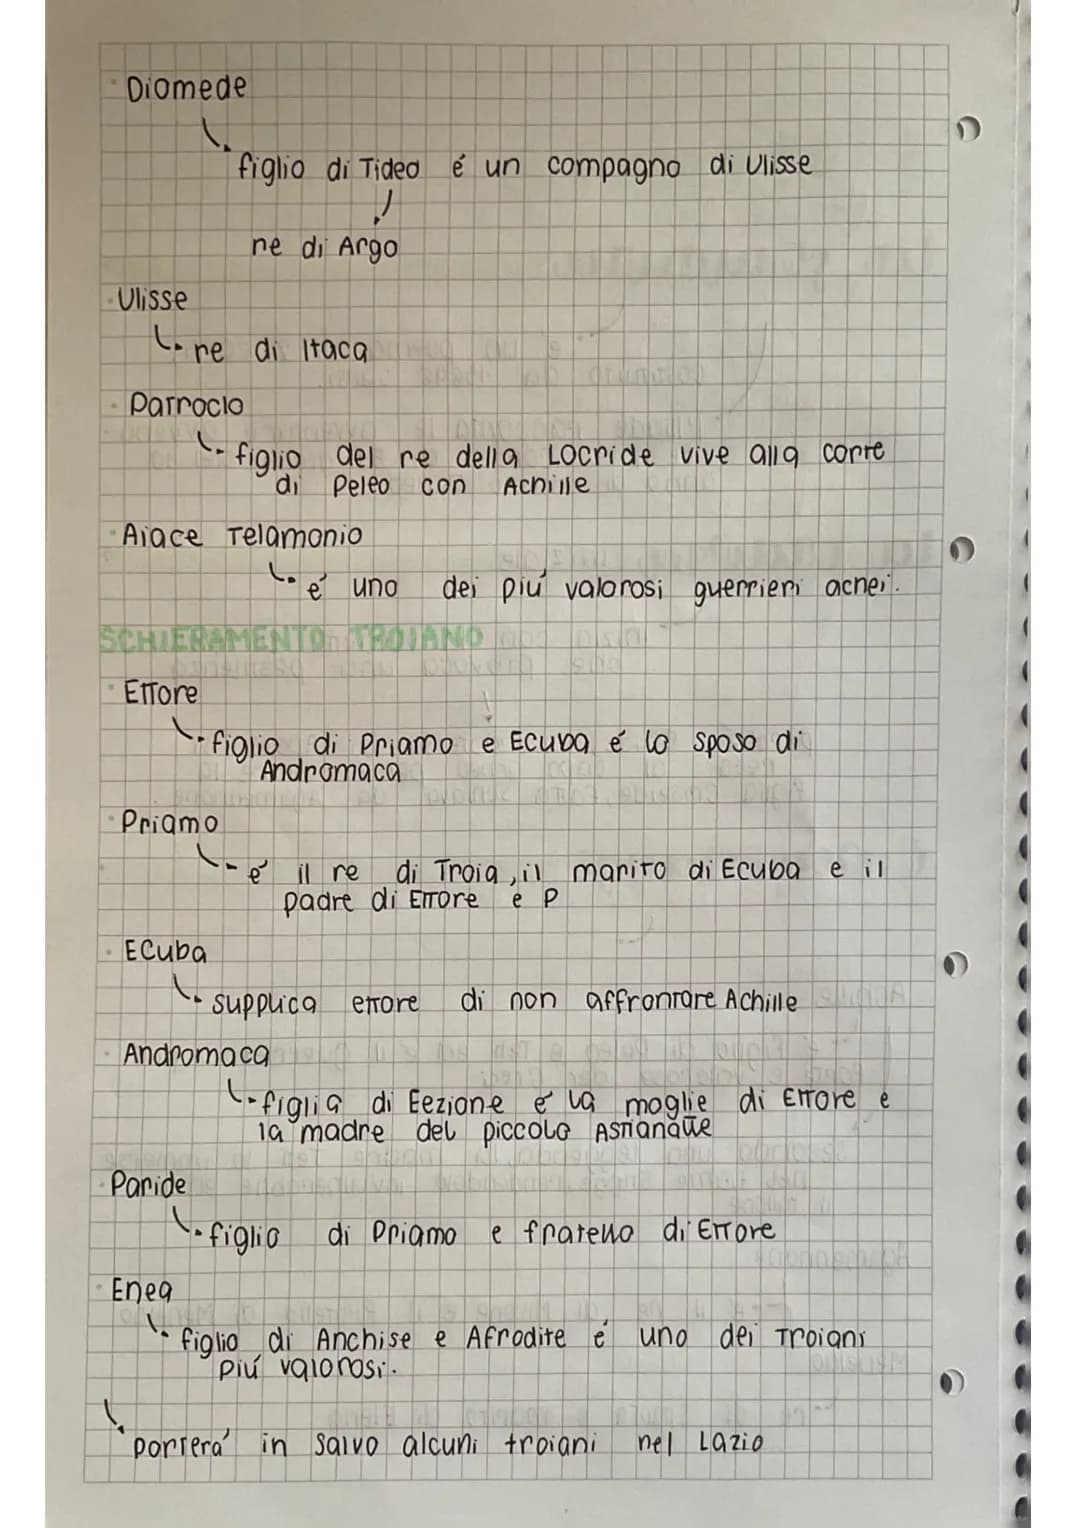 Diomede
figlio di Tideo é un compagno di Ulisse
re di Argo
Ulisse
re di Itaca
Patroclo
figlio del re della Locride vive alla corte
di Peleo con Achille
Aiace Telamonio
e' uno dei piu' valorosi guerrieri achei.
SCHIERAMENTO TROIANO
Ettore
figlio di Priamo e Ecuba é lo sposo di
Andromaca
Priamo
e' il re di Troia, il marito di Ecuba e il
padre di Ettore e P
Ecuba
supplica ettore di non affrontare Achille
Andromaca
figlia di Eezione e' la moglie di Ettore e
la madre del piccolo Astianatte
Paride
figlio di Priamo e fratello di Ettore
Enea
figlio di Anchise e Afrodite é uno dei Troiani
piú valorosi.
portera' in salvo alcuni troiani nel Lazio